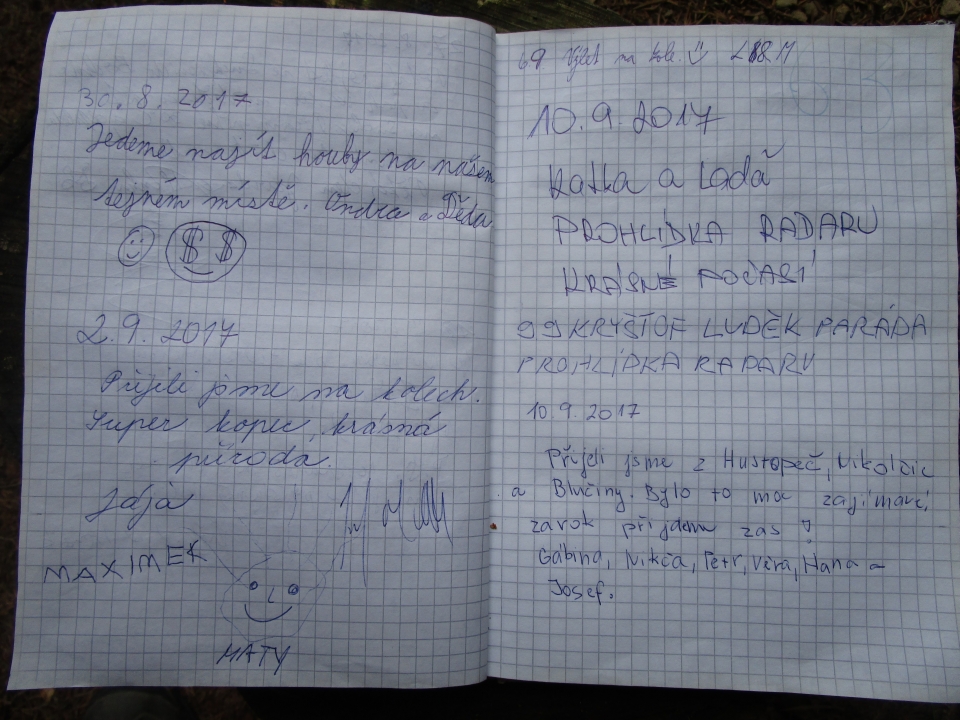 30.8.2017
Jedeme najít houby na našem
tejném místě. Ondra a Děda
$ $
2.9.2017
Přijeli jsme na kolech.
Super kopec, krásná
příroda.
Jája
MAXIMEK
MATY
69 Výlet na kole.
10.9.2017
Katka a Laďa
PROHLÍDKA RADARU
KRÁSNÉ POČASÍ
99 KRYŠTOF LUDĚK PARÁDA
PROHLÍDKA RADARU
10.9.2017
Přijeli jsme z Hustopeč, Nikolčic
a Blučiny. Bylo to moc zajímavé,
zarok přijdem zas!
Gábina, Nikča, Petr, Věra, Hana a
Josef.